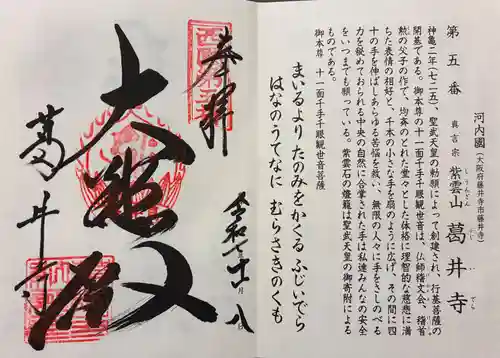 第五番
河内國(大阪府藤井寺市藤井寺)
真言宗 紫雲山 葛井寺
しうんざん ふじいでら
神亀二年(七二五)、聖武天皇の勅願によって創建され、行基菩薩の
開基である。御本尊の十一面千手千眼観世音は、仏師稽文会、稽首
勲の父子の作で、均斉のとれた堂々とした体格に理智的な慈悲に満
ちた表情の相好と、千本の小さな手を扇のように広げ、その間に四
十の手を伸ばしあらゆる苦悩を救い、無限の人々に手をさしのべる
力を秘めておられる中央の自然に合掌された手は私達みんなの安全
をいつまでも願っている。紫雲石の燈籠は聖武天皇の御寄附による
ものである。
御本尊 十一面千手千眼観世音菩薩
まいるより たのみをかくる ふじいでら
はなのうてなに むらさきのくも
奉拝
令和 十一月 八日
葛井寺